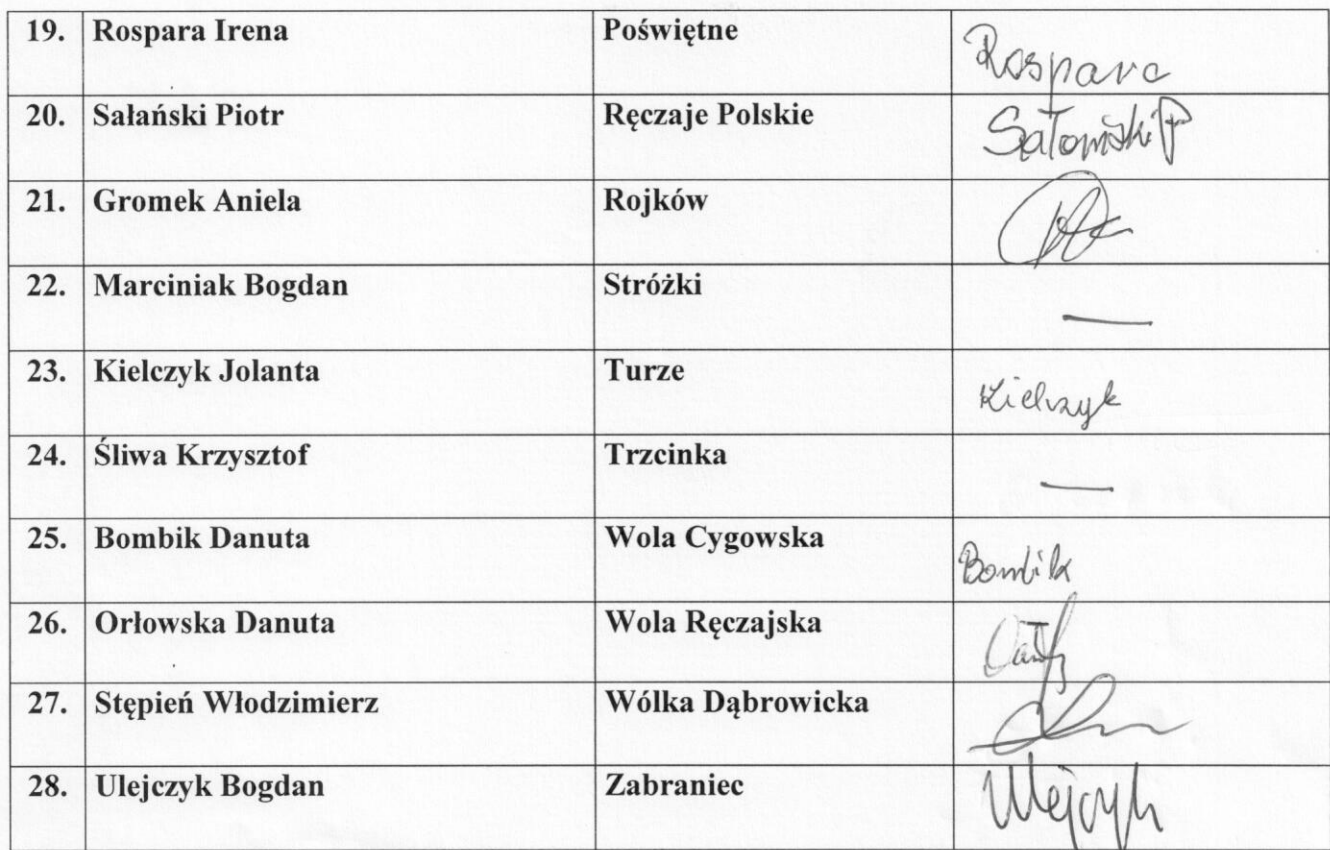 19. Rospara Irena Poświętne Rospara
20. Sałański Piotr Ręczaje Polskie Sałański P
21. Gromek Aniela Rojków
22. Marciniak Bogdan Stróżki —
23. Kielczyk Jolanta Turze Kielczyk
24. Śliwa Krzysztof Trzcinka —
25. Bombik Danuta Wola Cygowska Bombik
26. Orłowska Danuta Wola Ręczajska
27. Stępień Włodzimierz Wólka Dąbrowicka
28. Ulejczyk Bogdan Zabraniec Ulejczyk